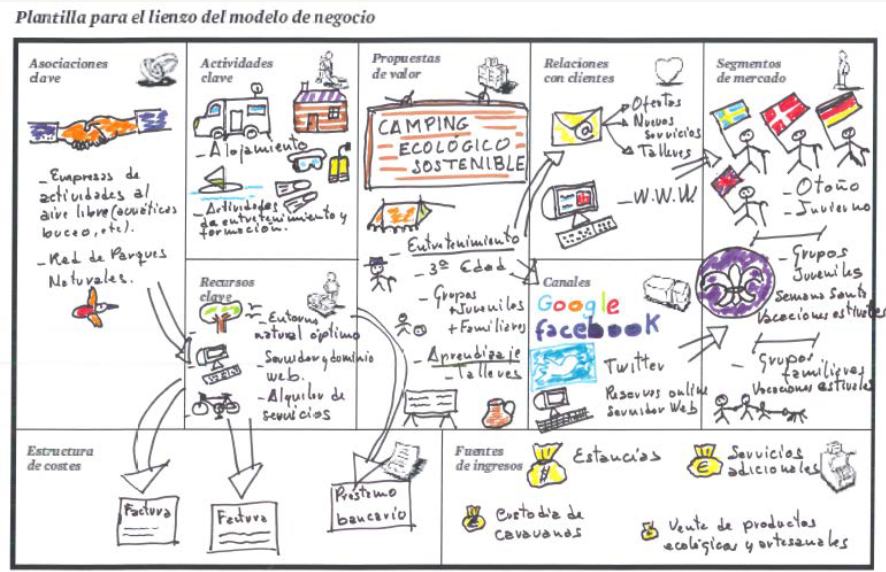 Plantilla para el lienzo del modelo de negocio
Asociaciones
clave
- Empresas de
actividades al
aire libre (acuáticas
buceo, etc).
- Red de Parques
Naturales.
Actividades
clave
- Alojamiento
- Actividades
de entretenimiento y
formación.
Recursos
clave
- Entorno
natural óptimo
- Servidor y dominio
web.
- Alquiler de
servicios
Propuestas
de valor
CAMPING
ECOLÓGICO
SOSTENIBLE
- Entretenimiento
- 3ª Edad
- Grupos
+ Juveniles
+ Familiares
- Aprendizaje
- Talleres
Relaciones
con clientes
Ofertas
Nuevos
servicios
Talleres
- W.W.W.
Canales
Google
facebook
Twitter
Reservas online
servidor Web
Segmentos
de mercado
- Otoño
- Invierno
- Grupos
Juveniles
Semana Santa
Vacaciones estivales
- Grupos
familiares
Vacaciones estivales
Estructura
de costes
Factura
Factura
Préstamo
bancario
Fuentes
de ingresos
Estancias
€
Servicios
adicionales
Custodia de
caravanas
Vente de productos
ecológicos y artesanales